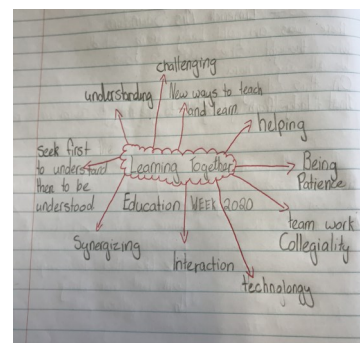 challenging
understanding
New ways to teach
and learn
helping
Seek first
to understand
then to be
understood
Learning Together
Being
Patience
Education WEEK 2020
team work
Collegiality
Synergizing
Interaction
technolongy